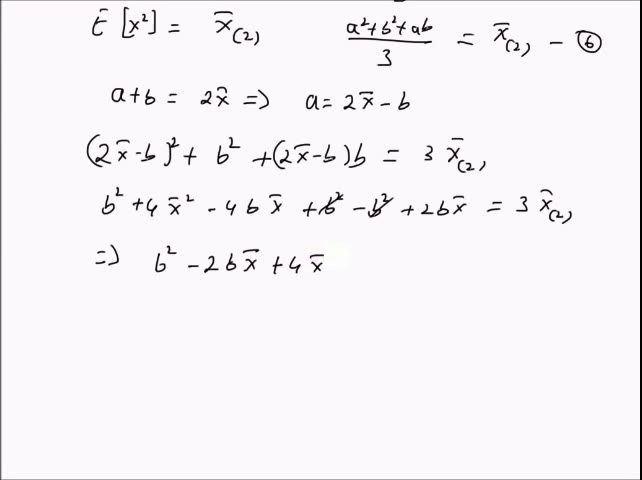 E [x²] = x̄₍₂₎ (a²+b²+ab)/3 = x̄₍₂₎ – ⑥
a+b = 2x̄ => a = 2x̄ – b
(2x̄–b)² + b² + (2x̄–b)b = 3 x̄₍₂₎
b² + 4x̄² – 4bx̄ + b² – b² + 2bx̄ = 3 x̄₍₂₎
=> b² – 2bx̄ + 4x̄